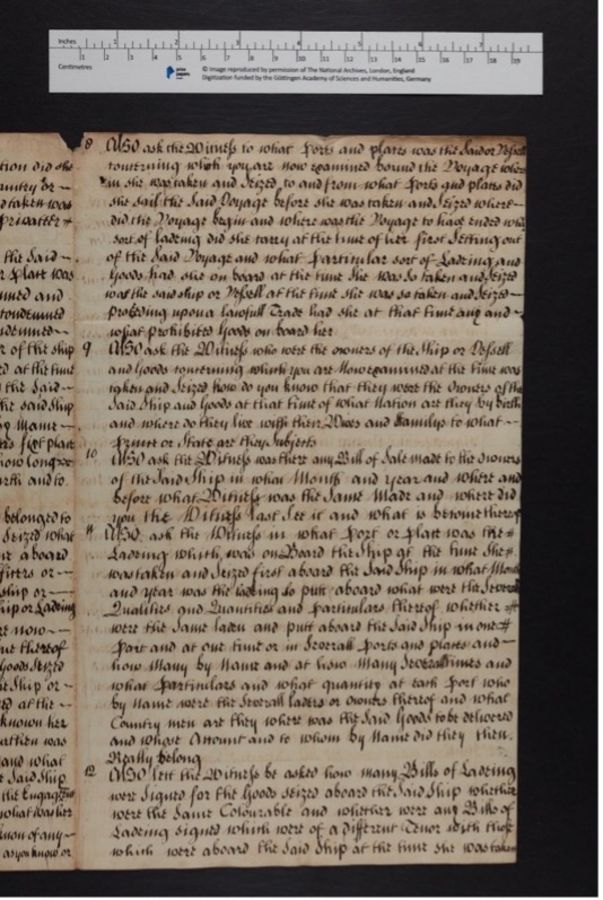 Inches 1 2 3 4 5 6 7
Centimetres 1 2 3 4 5 6 7 8 9 10 11 12 13 14 15 16 17 18 19
prize papers
© Image reproduced by permission of The National Archives, London, England
Digitization funded by the Göttingen Academy of Sciences and Humanities, Germany
tion did she
untry or
d taken was
privateer
the said
r place was
nned and
condemned
ndemned
r of the ship
d at the time
the said
he said ship
y Name
first place
how long
rth and to
belonged to
Seized what
aboard
fficers or
ship or
hip or Lading
re now
ue thereof
Goods Seized
e Ship or
ed at the
known her
then was
and what
e Said Ship
the Engag
what was her
know of any
as you know or
8 Also ask the Witness to what Ports and places was the said or Vessell
concerning which you are now examined bound the Voyage where
in she was taken and Seized, to and from what Ports and places did
she sail the said Voyage before she was taken and Seized where
did the Voyage begin and where was the Voyage to have ended what
sort of Ladeing did she carry at the time of her first Setting out
of the said Voyage and what particular sort of Ladeing and
Goods had she on board at the time she was so taken and Seized
was the said ship or Vessell at the time she was so taken and Seized
proceeding upon a lawfull Trade had she at that time any and
what prohibited Goods on board her
9 Also ask the Witness who were the owners of the Ship or Vessell
and Goods concerning which you are Now examined at the time was
taken and Seized how do you know that they were the Owners of the
Said Ship and Goods at that time of what Nation are they by birth
and where do they live with their Wives and Familys to what
Prince or State are they Subjects
10 Also ask the Witness was there any Bill of Sale made to the owners
of the Said Ship in what Month and year and where and
before what Witness was the Same Made and where did
you the Witness last See it and what is become thereof
11 Also ask the Witness in what Port or Place was the
Ladeing which was on Board the Ship at the time she
was taken and Seized first aboard the Said Ship in what Month
and year was the ladeing so putt aboard what were the Severall
Qualities and Quantities and particulars thereof whether
were the Same laden and putt aboard the Said Ship in one
Port and at one time or in Severall Ports and places and
how Many by Name and at how Many Severall times and
what Particulars and what quantity at each Port who
by Name were the Severall laders or owners thereof and what
Country men are they where was the Said Goods to be delivered
and whose Account and to whom by Name did they then
Really belong
12 Also lett the Witness be asked how many Bills of Ladeing
were Signed for the Goods Seized aboard the Said Ship whether
were the Same Colourable and whether were any Bills of
Ladeing signed which were of a different Tenor with those
which were aboard the Said Ship at the time she was taken